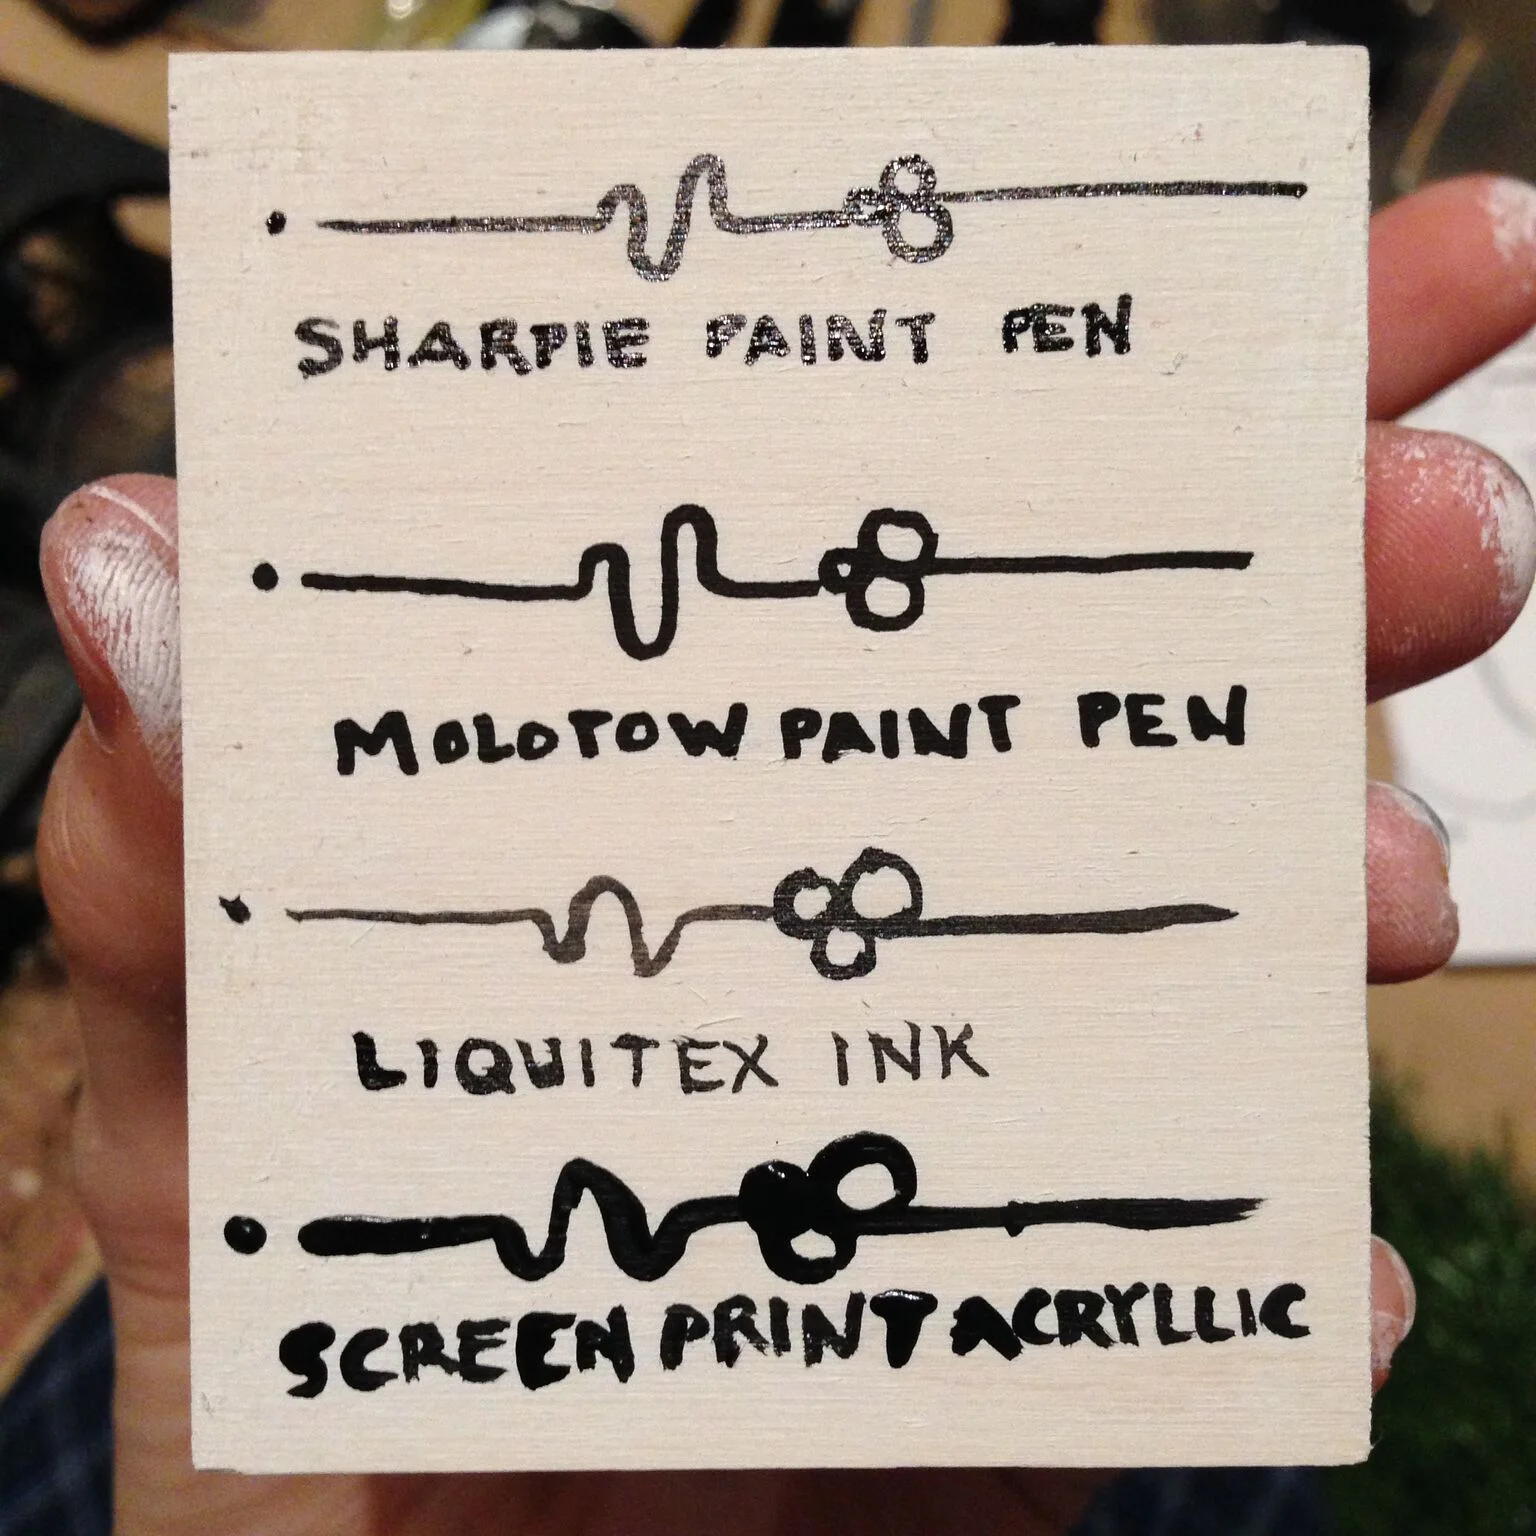 SHARPIE PAINT PEN
MOLOTOW PAINT PEN
LIQUITEX INK
SCREEN PRINT ACRYLLIC